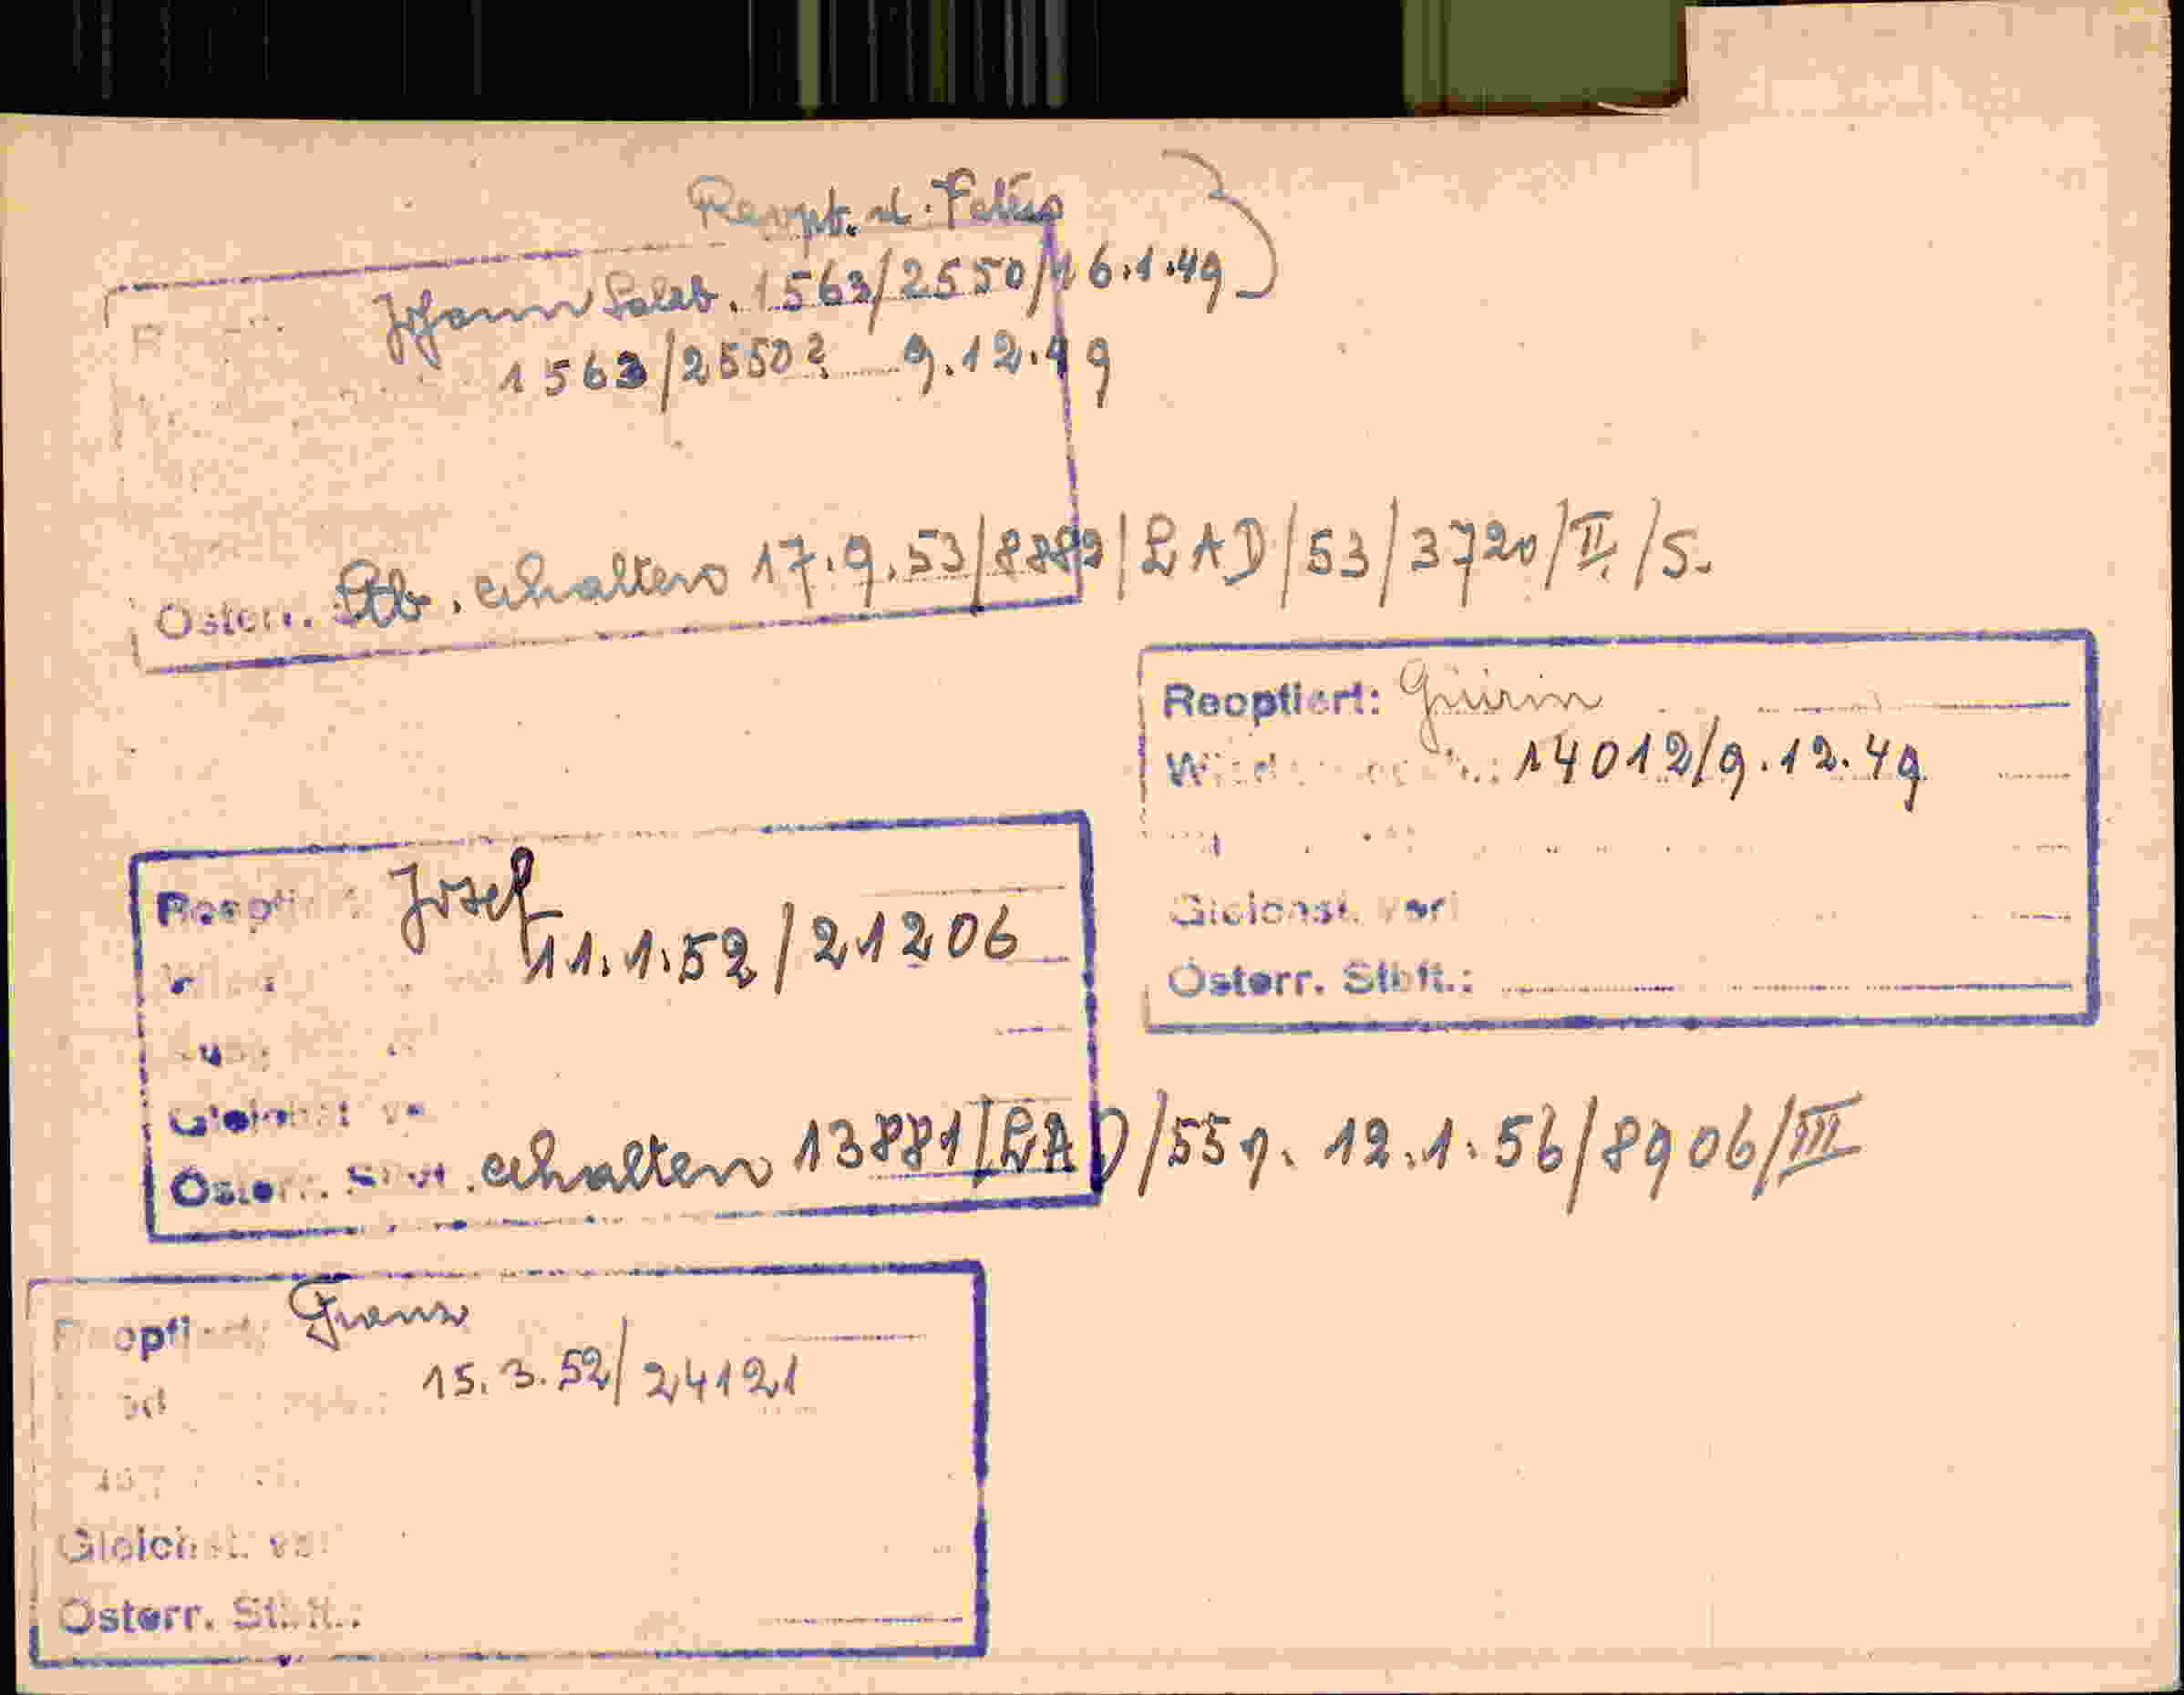 Reopt. d.
Johann Salzb. 1563/2550/16.1.49
1563/2550? 9.12.49
Österr. Stb. erhalten 17.9.53/8389/LAD/53/3720/II/5.
Reoptiert:
14012/9.12.49
Gleichst. verl
Österr. Stbft.:
Reoptiert: Josef
11.1.52/21206
Gleichst. ve
Österr. Stbft. erhalten 13881/LAD/55 v. 12.1.56/8906/III
Reoptiert: Franz
15.3.52/24121
Gleichst. ver
Österr. Stbft.: